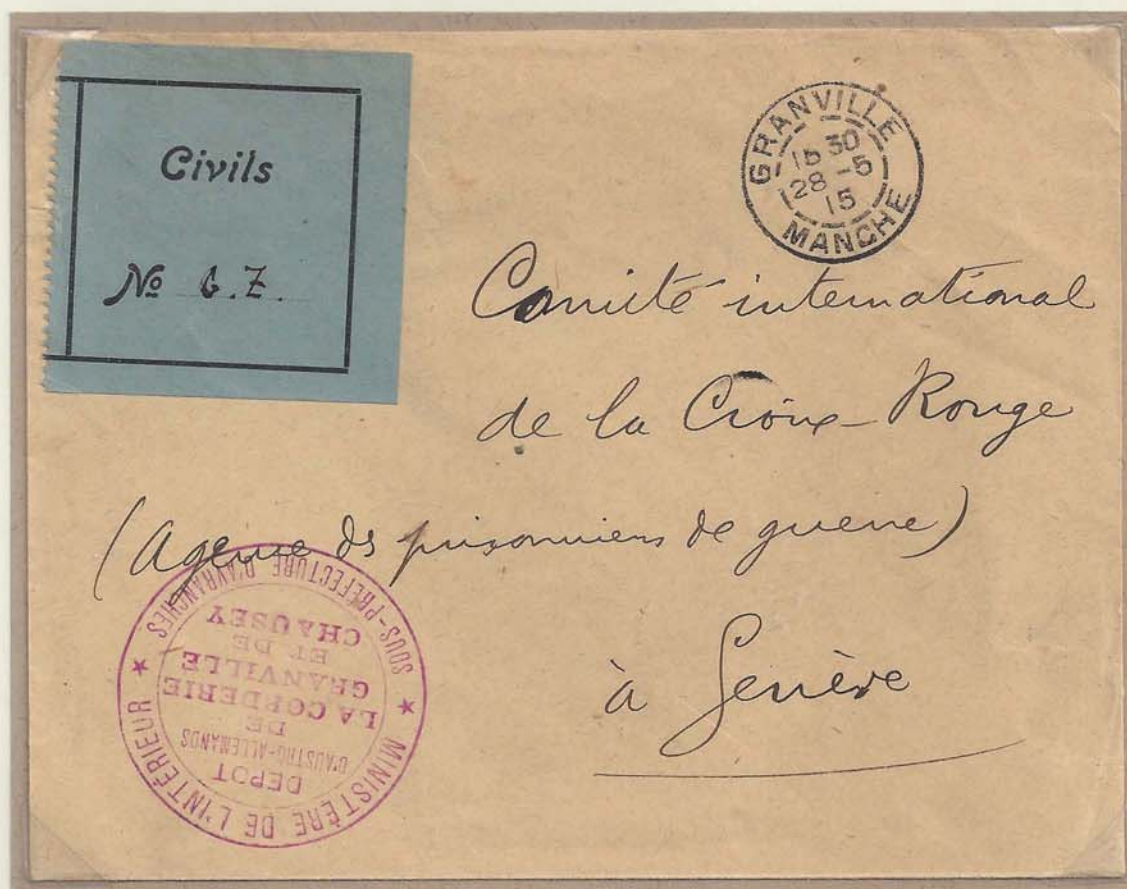 Civils
No G.Z.
GRANVILLE
28 -5
15
MANCHE
Comité international
de la Croix-Rouge
(Agence des prisonniers de guerre)
à Genève
★ MINISTÈRE DE L'INTÉRIEUR ★
SOUS-PRÉFECTURE D'AVRANCHES
DEPOT
D'AUSTRO-ALLEMANDS
DE
LA CORDERIE
GRANVILLE
ET DE
CHAUSEY